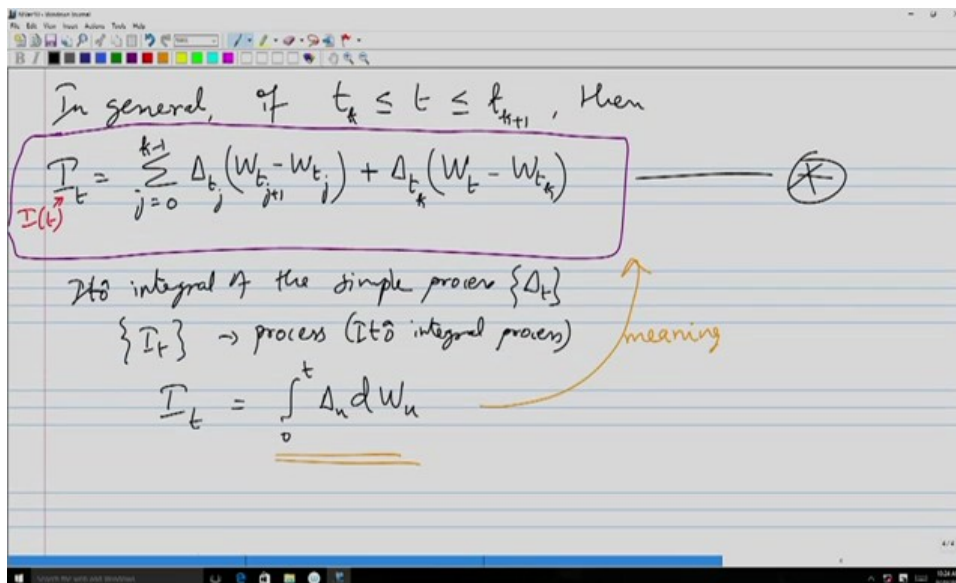 File Edit View Insert Actions Tools Help
B I
In general, if t_k ≤ t ≤ t_{k+1}, then
I_t = ∑_{j=0}^{k-1} Δ_{t_j}(W_{t_{j+1}} - W_{t_j}) + Δ_{t_k}(W_t - W_{t_k}) ——— ⊛
I(t)
Itô integral of the simple process {Δ_t}
{I_t} → process (Itô integral process)
meaning
I_t = ∫_0^t Δ_u dW_u
4/4